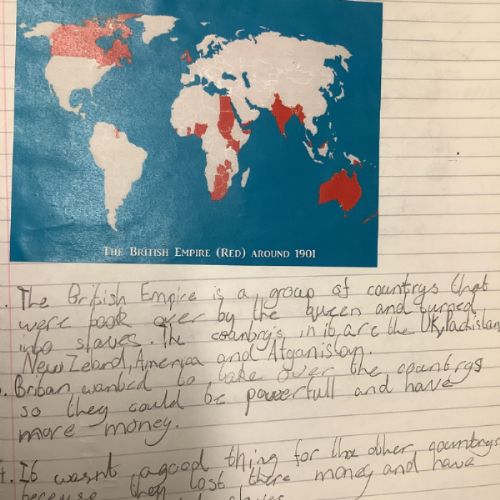 THE BRITISH EMPIRE (RED) AROUND 1901
. The British Empire is a group of countrys that
were took over by the queen and turned
into slaves. The countrys in it are the UK, Packistan
New Zeand, America and Afganistan.
. Britan wanted to take over the countrys
so they could be powerfull and have
more money.
4. It wasnt a good thing for the other countrys
because they lost there money and have